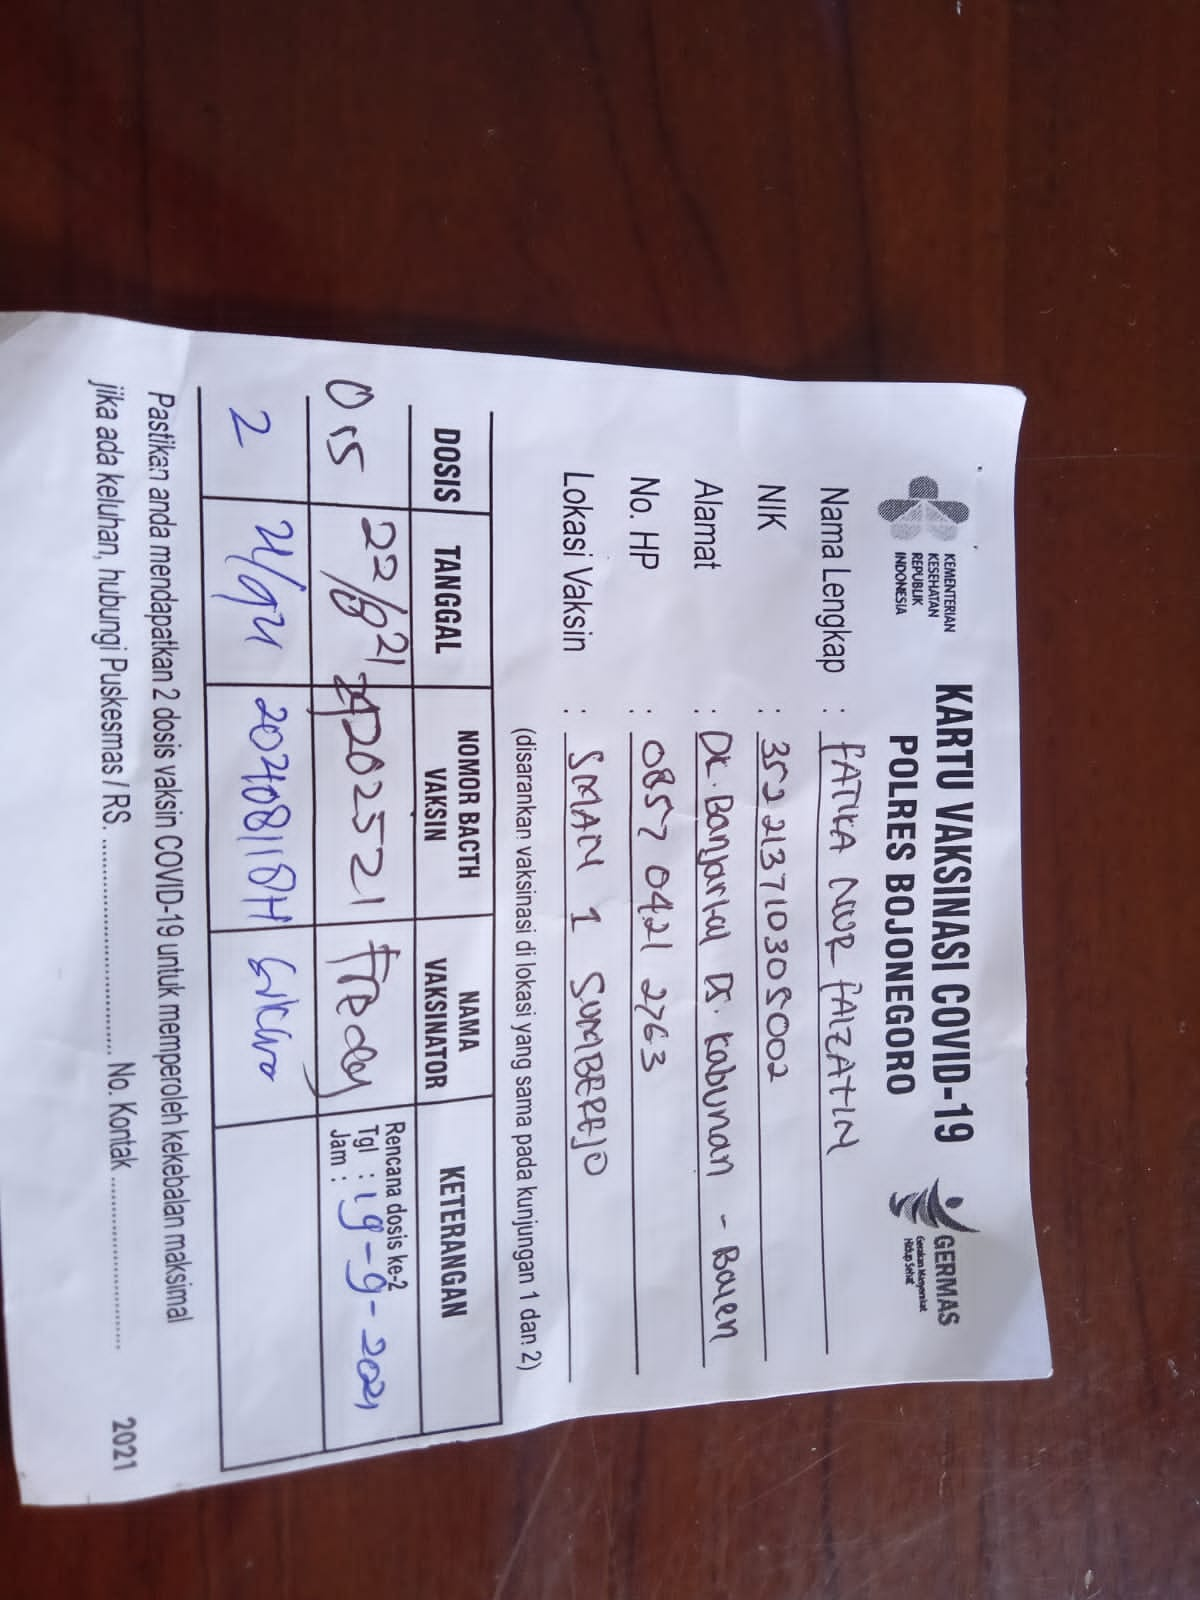 KEMENTERIAN
KESEHATAN
REPUBLIK
INDONESIA
KARTU VAKSINASI COVID-19
POLRES BOJONEGORO
GERMAS
Gerakan Masyarakat
Hidup Sehat
Nama Lengkap : FATIKA NUR FAIZATIN
NIK : 3522137103050002
Alamat : Dk. Banjartal Ds. Kabunan - Balen
No. HP : 0857 0421 2763
Lokasi Vaksin : SMAN 1 SUMBEREJO
(disarankan vaksinasi di lokasi yang sama pada kunjungan 1 dan 2)
DOSIS TANGGAL NOMOR BACTH VAKSIN NAMA VAKSINATOR KETERANGAN
22/8 21 Fredy Rencana dosis ke-2
Tgl : 19-9-2021
Jam :
2
Pastikan anda mendapatkan 2 dosis vaksin COVID-19 untuk memperoleh kekebalan maksimal
jika ada keluhan, hubungi Puskesmas / RS. .................................... No. Kontak ............................
2021